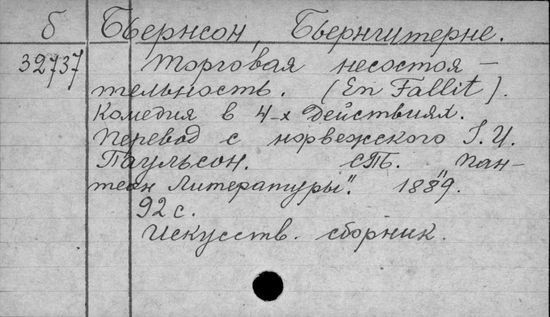 б Бьернсон, Бьернштерне.
32737 Торговая несостоя-
тельность. (En Fallit).
Комедия в 4-х действиях.
Перевод с норвежского I. И.
Паульсон. СПб. "Пан-
теон Литературы". 1889.
92 с.
Искусств. сборник.